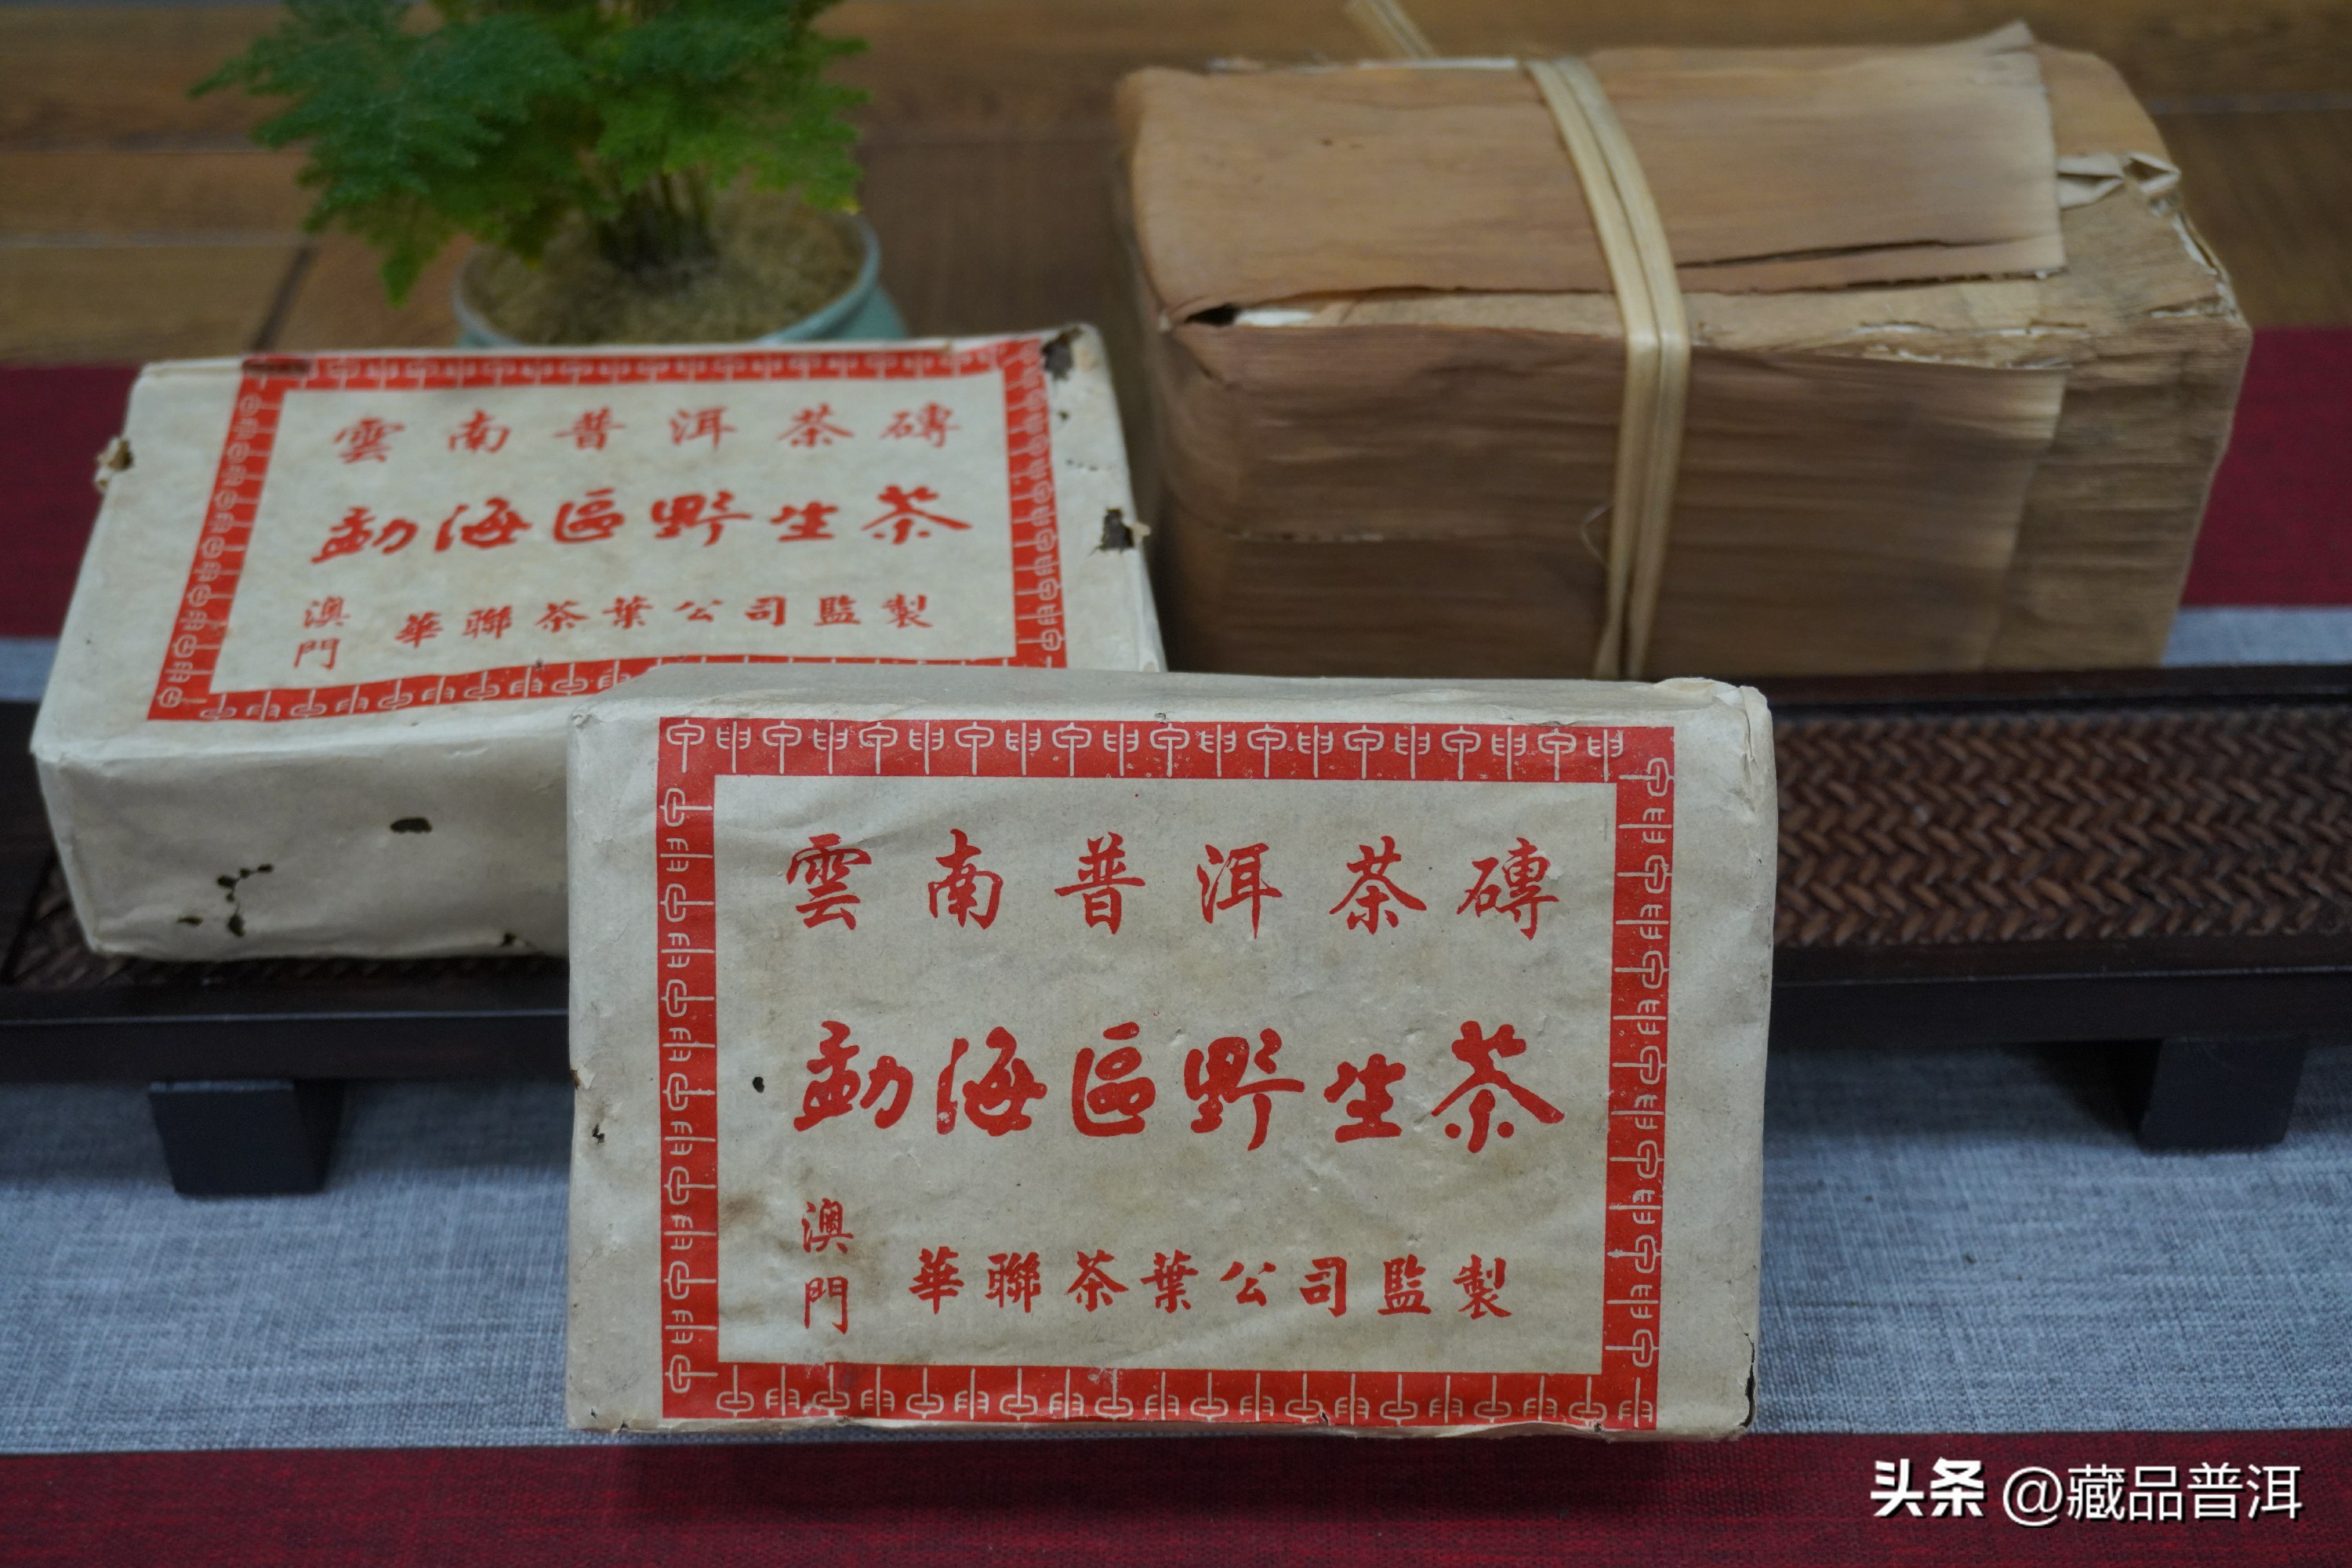 雲南普洱茶磚
勐海區野生茶
澳門 華聯茶葉公司監製
雲南普洱茶磚
勐海區野生茶
澳門 華聯茶葉公司監製
头条 @藏品普洱